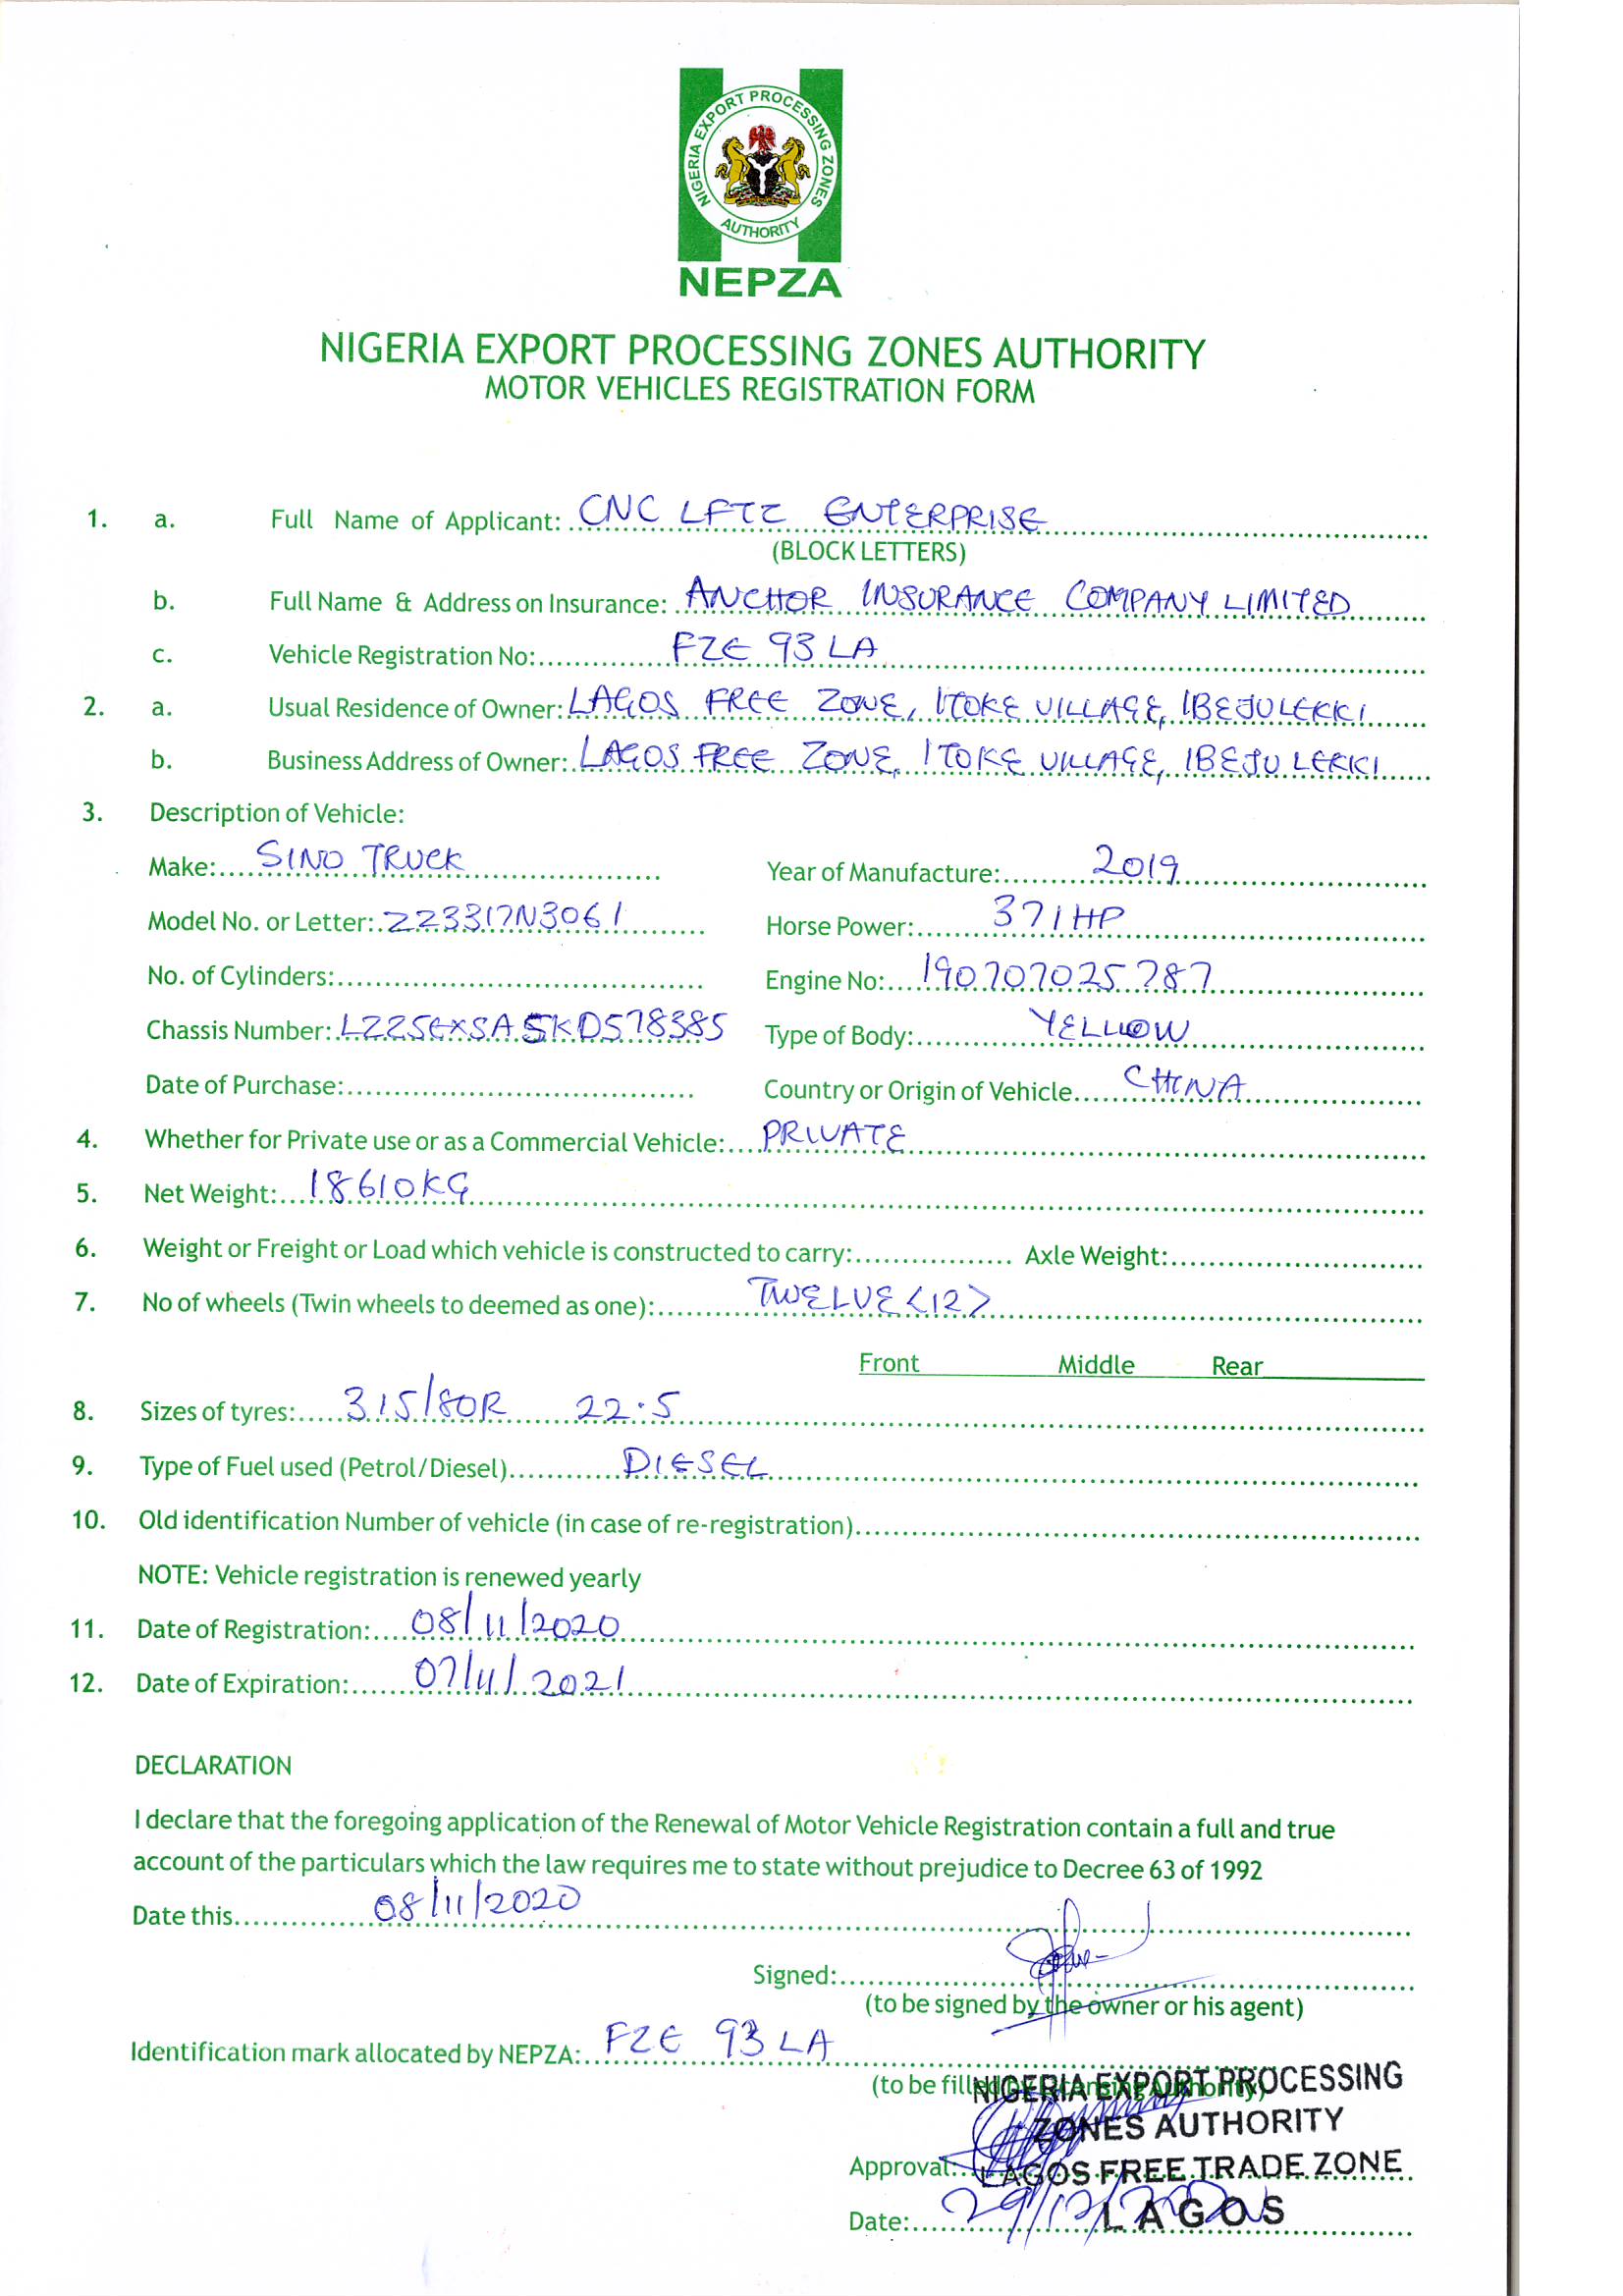 NIGERIA EXPORT PROCESSING ZONES
AUTHORITY
NEPZA
NIGERIA EXPORT PROCESSING ZONES AUTHORITY
MOTOR VEHICLES REGISTRATION FORM
1. a. Full Name of Applicant: CNC LFTZ ENTERPRISE
(BLOCK LETTERS)
b. Full Name & Address on Insurance: ANCHOR INSURANCE COMPANY LIMITED
c. Vehicle Registration No: FZE 93 LA
2. a. Usual Residence of Owner: LAGOS FREE ZONE, ITOKE VILLAGE, IBEJU LEKKI
b. Business Address of Owner: LAGOS FREE ZONE, ITOKE VILLAGE, IBEJU LEKKI
3. Description of Vehicle:
Make: SINO TRUCK Year of Manufacture: 2019
Model No. or Letter: ZZ3317N3061 Horse Power: 371HP
No. of Cylinders: Engine No: 190707025787
Chassis Number: LZZ5EXSA5KD578385 Type of Body: YELLOW
Date of Purchase: Country or Origin of Vehicle CHINA
4. Whether for Private use or as a Commercial Vehicle: PRIVATE
5. Net Weight: 18610KG
6. Weight or Freight or Load which vehicle is constructed to carry: Axle Weight:
7. No of wheels (Twin wheels to deemed as one): TWELVE <12>
Front Middle Rear
8. Sizes of tyres: 315/80R 22.5
9. Type of Fuel used (Petrol/Diesel) DIESEL
10. Old identification Number of vehicle (in case of re-registration)
NOTE: Vehicle registration is renewed yearly
11. Date of Registration: 08/11/2020
12. Date of Expiration: 07/11/2021
DECLARATION
I declare that the foregoing application of the Renewal of Motor Vehicle Registration contain a full and true
account of the particulars which the law requires me to state without prejudice to Decree 63 of 1992
Date this 08/11/2020
Signed:
(to be signed by the owner or his agent)
Identification mark allocated by NEPZA: FZE 93 LA
(to be filled by Licensing Authority)
NIGERIA EXPORT PROCESSING
ZONES AUTHORITY
Approval: LAGOS FREE TRADE ZONE
Date: 29/12/2020 LAGOS